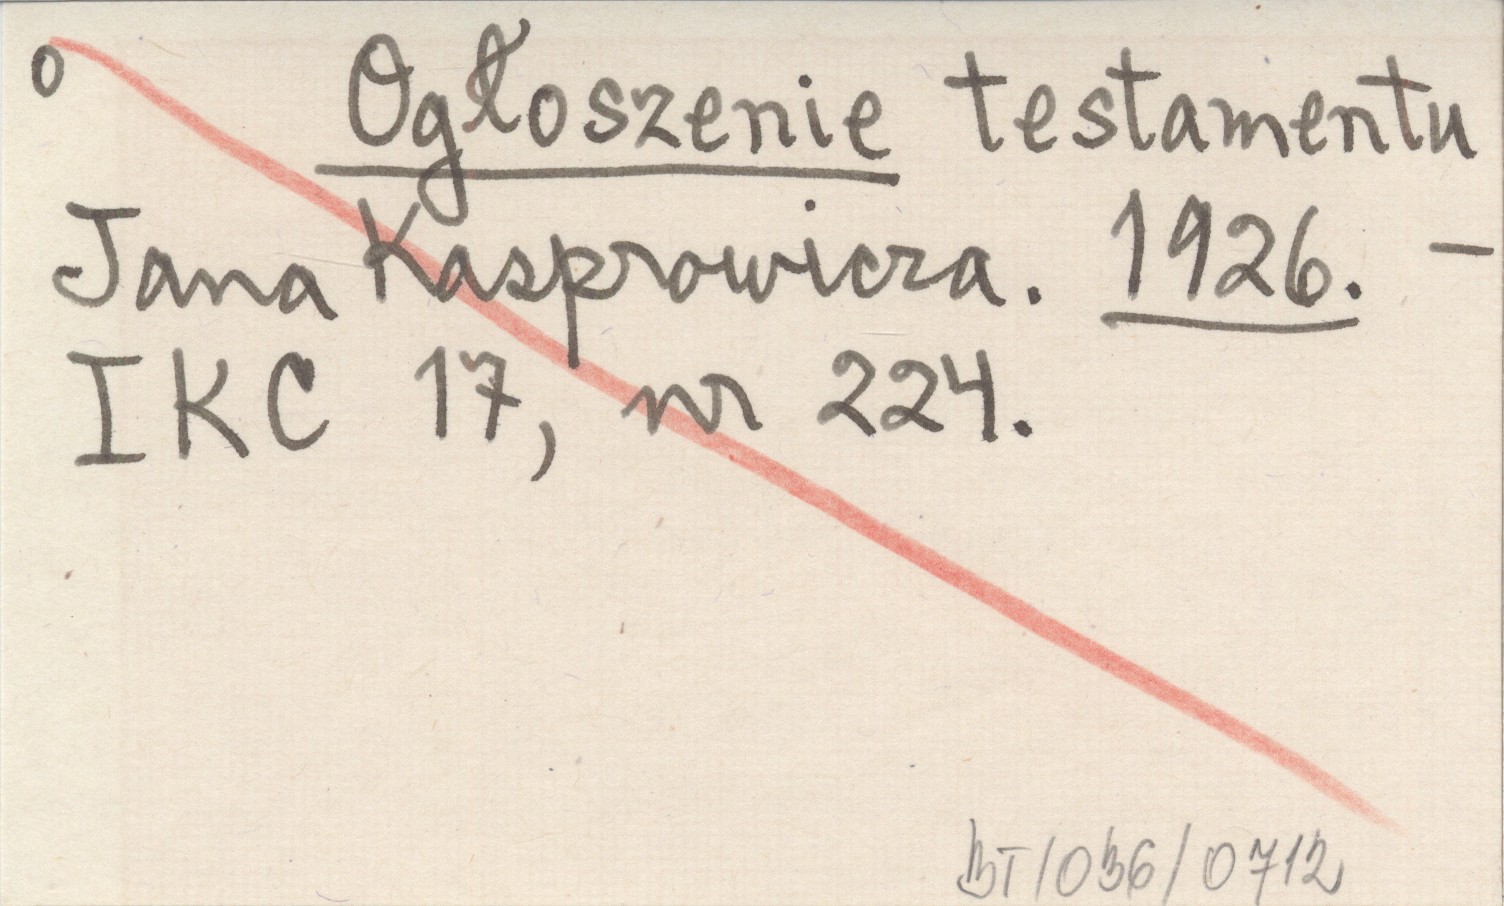 o Ogłoszenie testamentu
Jana Kasprowicza. 1926. –
IKC 17, nr 224.
BT/036/0712